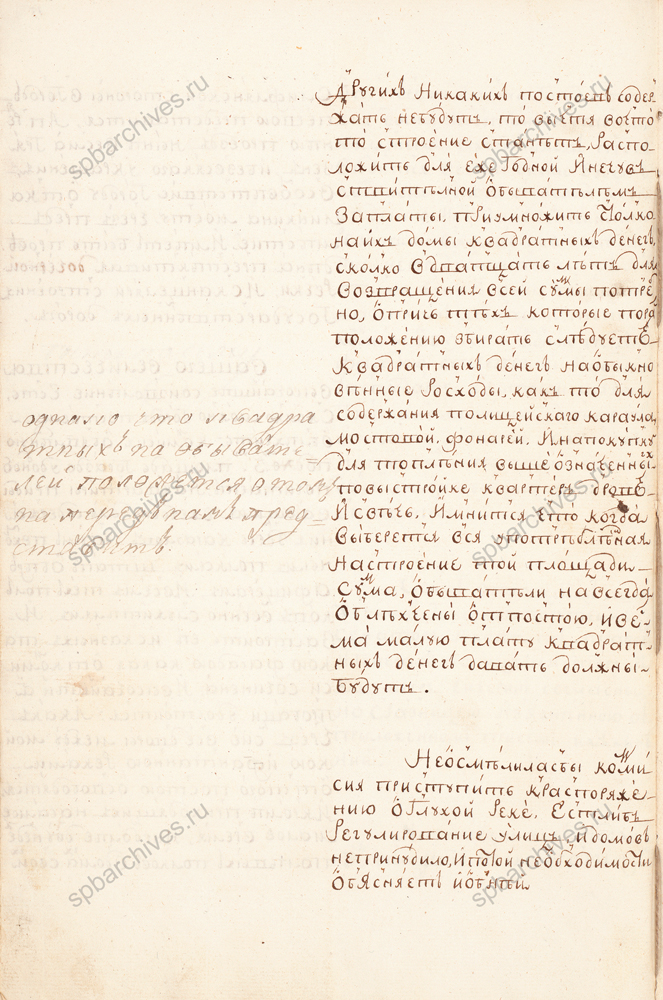 другихъ никакихъ постоевъ содер
жать небудутъ, то вычтя вочто
то строение станетъ, распо
ложить для ежегодной и нечув
ствителной обывателемъ
заплаты, приумножить только
на ихъ домы квадратныхъ денегъ,
сколко въ платить летъ для
возвращения всей суммы потре
но, опричь техъ которые пора
положению збирать следуетъ
квадратныхъ денегъ на обыкно
венные росходы, какъ то для
содержания полицейскаго караула,
мостовой, фонарей, и на покупку
для топления вышеозначенныхъ
повыстройке квартеръ дровъ
и свечь. И мнится что когда
выберется вся употребленая
на строение той площади
сумма, обыватели навсегда
облехчены отпостою, и ве
ма малую плату квадрат
ныхъ денегъ давать должны
будутъ.
однако что квадра
тныхъ на обывате
лей положется отомъ
намерена намъ пред
ставить.
Неосмелиласьбы комми
сия приступить красторяже
нию о Глухой реке, естлибъ
регулирование улицъ, и домовъ
непринудило, и по той необходимости
объясняетъ